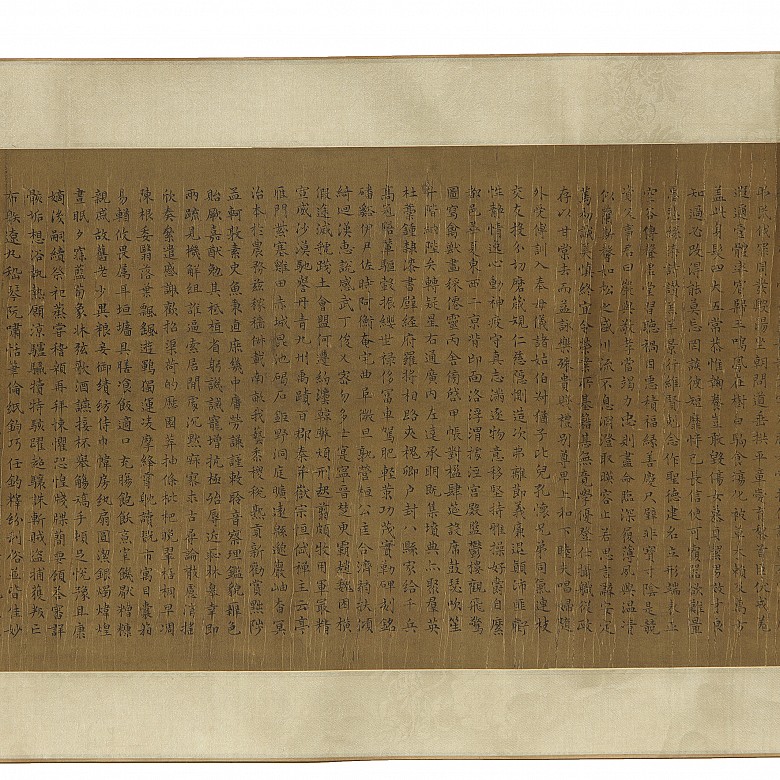 弔民伐罪周發殷湯坐朝問道垂拱平章愛育黎首臣伏戎羌
遐邇壹體率賓歸王鳴鳳在樹白駒食場化被草木賴及萬方
蓋此身髮四大五常恭惟鞠養豈敢毀傷女慕貞潔男效才良
知過必改得能莫忘罔談彼短靡恃己長信使可覆器欲難量
墨悲絲染詩讚羔羊景行維賢剋念作聖德建名立形端表正
空谷傳聲虛堂習聽禍因惡積福緣善慶尺璧非寶寸陰是競
資父事君曰嚴與敬孝當竭力忠則盡命臨深履薄夙興溫凊
似蘭斯馨如松之盛川流不息淵澄取映容止若思言辭安定
篤初誠美慎終宜令榮業所基籍甚無竟學優登仕攝職從政
存以甘棠去而益詠樂殊貴賤禮別尊卑上和下睦夫唱婦隨
外受傅訓入奉母儀諸姑伯叔猶子比兒孔懷兄弟同氣連枝
交友投分切磨箴規仁慈隱惻造次弗離節義廉退顛沛匪虧
性靜情逸心動神疲守真志滿逐物意移堅持雅操好爵自縻
都邑華夏東西二京背邙面洛浮渭據涇宮殿盤鬱樓觀飛驚
圖寫禽獸畫綵僊靈丙舍傍啓甲帳對楹肆筵設席鼓瑟吹笙
升階納陛弁轉疑星右通廣內左達承明既集墳典亦聚羣英
杜藁鍾隸漆書壁經府羅將相路夾槐卿户封八縣家給千兵
高冠陪輦驅轂振纓世祿侈富車駕肥輕策功茂實勒碑刻銘
磻谿伊尹佐時阿衡奄宅曲阜微旦孰營桓公匡合濟弱扶傾
綺迴漢惠説感武丁俊乂密勿多士寔寧晉楚更霸趙魏困橫
假途滅虢踐土會盟何遵約灋韓弊煩刑起翦頗牧用軍最精
宣威沙漠馳譽丹青九州禹蹟百郡秦并嶽宗恒岱禪主云亭
雁門紫塞雞田赤城昆池碣石鉅野洞庭曠遠緜邈巖岫杳冥
治本於農務茲稼穡俶載南畝我藝黍稷稅熟貢新勸賞黜陟
孟軻敦素史魚秉直庶幾中庸勞謙謹敕聆音察理鑑貌辨色
貽厥嘉猷勉其祗植省躬譏誡寵增抗極殆辱近恥林皋幸即
兩疏見機解組誰逼索居閒處沉默寂寥求古尋論散慮逍遙
欣奏累遣慼謝歡招渠荷的歷園莽抽條枇杷晚翠梧桐早凋
陳根委翳落葉飄颻遊鵾獨運凌摩絳霄耽讀翫市寓目囊箱
易輶攸畏屬耳垣墻具膳飡飯適口充腸飽飫烹宰飢厭糟糠
親戚故舊老少異糧妾御績紡侍巾帷房紈扇圓潔銀燭煒煌
晝眠夕寐藍筍象牀弦歌酒讌接杯舉觴矯手頓足悅豫且康
嫡後嗣續祭祀蒸嘗稽顙再拜悚懼恐惶牋牒簡要顧答審詳
骸垢想浴執熱願涼驢騾犢特駭躍超驤誅斬賊盜捕獲叛亡
布射遼丸嵇琴阮嘯恬筆倫紙鈞巧任釣釋紛利俗並皆佳妙